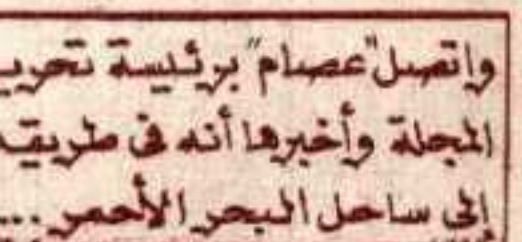 واتصل "عصام" برئيسة تحرير
المجلة وأخبرها أنه فى طريقه
إلى ساحل البحر الأحمر ...